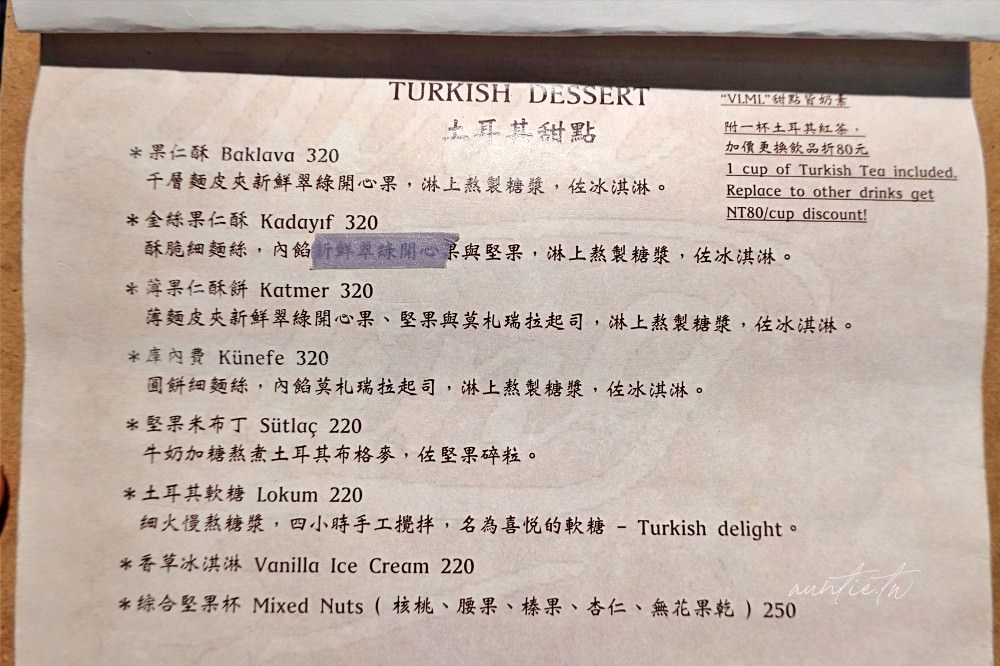 TURKISH DESSERT
土耳其甜點
"VLML"甜點皆奶素
附一杯土耳其紅茶，
加價更換飲品折80元
1 cup of Turkish Tea included.
Replace to other drinks get
NT80/cup discount!
*果仁酥 Baklava 320
千層麵皮夾新鮮翠綠開心果，淋上熬製糖漿，佐冰淇淋。
*金絲果仁酥 Kadayıf 320
酥脆細麵絲，內餡新鮮翠綠開心果與堅果，淋上熬製糖漿，佐冰淇淋。
*薄果仁酥餅 Katmer 320
薄麵皮夾新鮮翠綠開心果、堅果與莫札瑞拉起司，淋上熬製糖漿，佐冰淇淋。
*庫內費 Künefe 320
圓餅細麵絲，內餡莫札瑞拉起司，淋上熬製糖漿，佐冰淇淋。
*堅果米布丁 Sütlaç 220
牛奶加糖熬煮土耳其布格麥，佐堅果碎粒。
*土耳其軟糖 Lokum 220
細火慢熬糖漿，四小時手工攪拌，名為喜悅的軟糖 - Turkish delight。
*香草冰淇淋 Vanilla Ice Cream 220
*綜合堅果杯 Mixed Nuts ( 核桃、腰果、榛果、杏仁、無花果乾 ) 250
auntie.tw